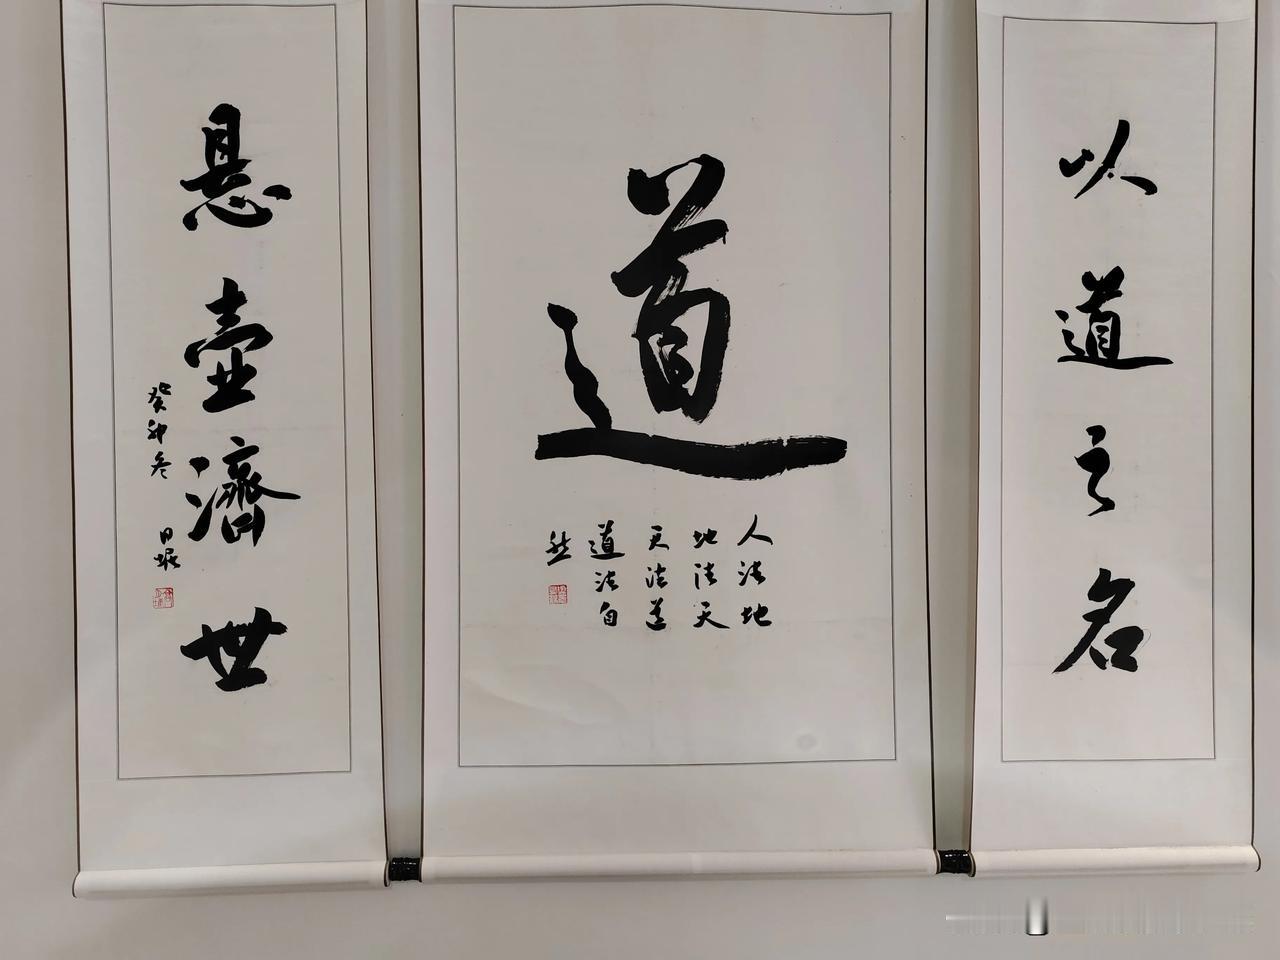 以道之名
道
人法地
地法天
天法道
道法自
然
悬壶濟世
癸卯冬